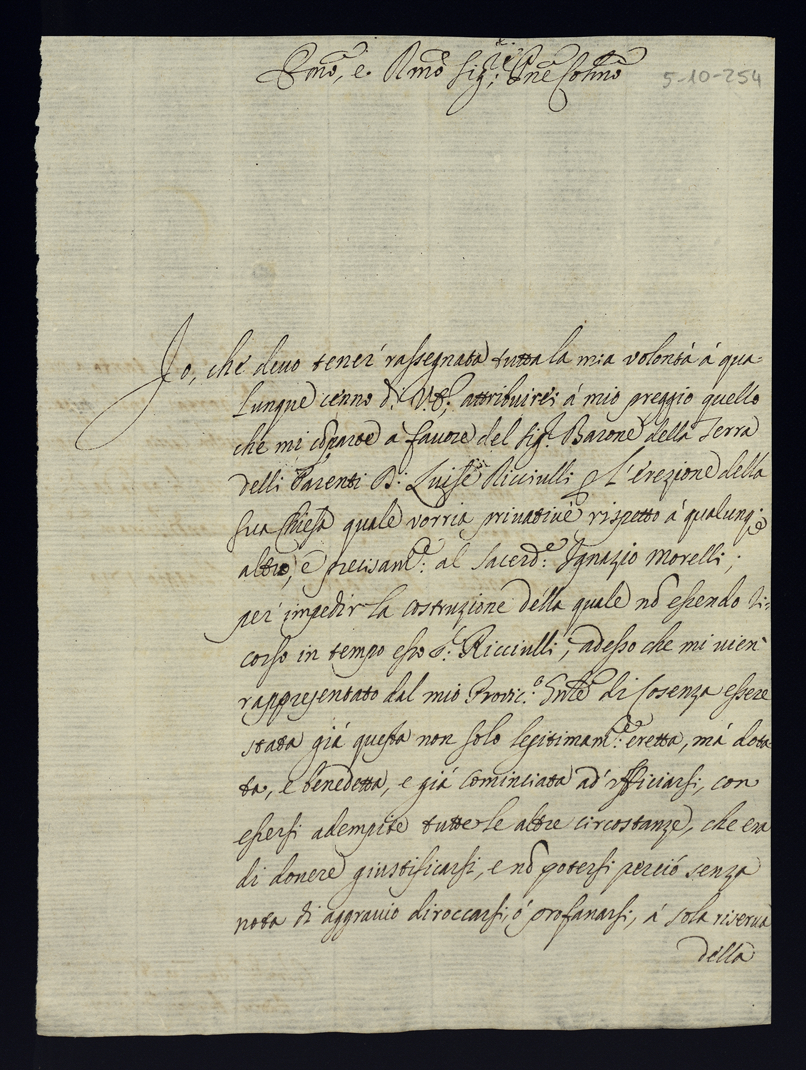 Emo, e Rmo Sig.re Pne Colmo
5-10-254
Io, che devo tener rassegnata tutta la mia volontà à qua-
lunque cenno di V.E., attribuirei à mio preggio quello
che mi comparte a favore del Sig.r Barone della Terra
delli Parenti D. Luise Ricciulli p l'erezione della
sua Chiesa quale vorria privativè rispetto à qualunq.e
altro, e precisam.e al Sacerd.e Ignazio Morelli;
per impedir la costruzione della quale nõ essendo ri-
corso in tempo esso d.o Ricciulli, adesso che mi vien
rappresentato dal mio Provic.o Gnle di Cosenza essere
stata già questa non solo legitimam.e eretta, mà dota-
ta, e benedetta, e già cominciata ad ufficiarsi, con
essersi adempite tutte le altre circostanze, che era
di dovere giustificarsi, e nõ potersi perciò senza
nota di aggravio diroccarsi, ò profanarsi, à sola riserva
della